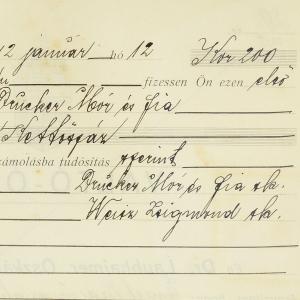 12 január hó 12 Kor 200
fizessen Ön ezen első
Drucker Mór és fia
Kettőszáz
számolásba tudósítás szerint
Drucker Mór és fia sk.
Weisz Zsigmond sk.